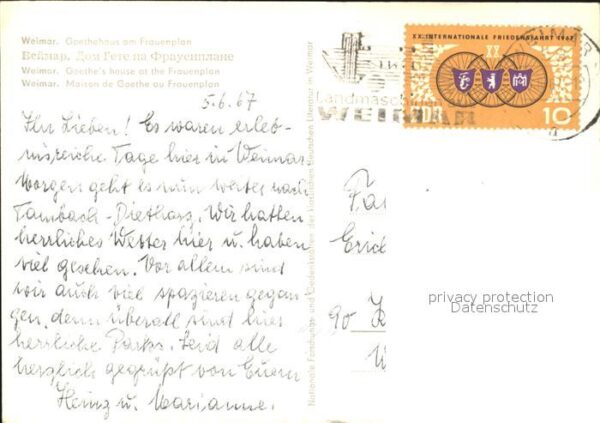 Weimar. Goethehaus am Frauenplan
Веймар. Дом Гете на Фрауенплане
Weimar. Goethe's house at the Frauenplan
Weimar. Maison de Goethe au Frauenplan
5.6.67
Ihr Lieben! Es waren erleb-
nisreiche Tage hier in Weimar.
Morgen geht es nun weiter nach
Tambach-Dietharz. Wir hatten
herrliches Wetter hier u. haben
viel gesehen. Vor allem sind
wir auch viel spazieren gegan-
gen, denn überall sind hier
herrliche Parks. Seid alle
herzlich gegrüßt von Euern
Heinz u. Marianne.
Nationale Forschungs- und Gedenkstätten der klassischen deutschen Literatur in Weimar
XX. INTERNATIONALE FRIEDENSFAHRT 1967
XX
DDR
10
Landmasch
WEIMAR
Eric
90
privacy protection
Datenschutz